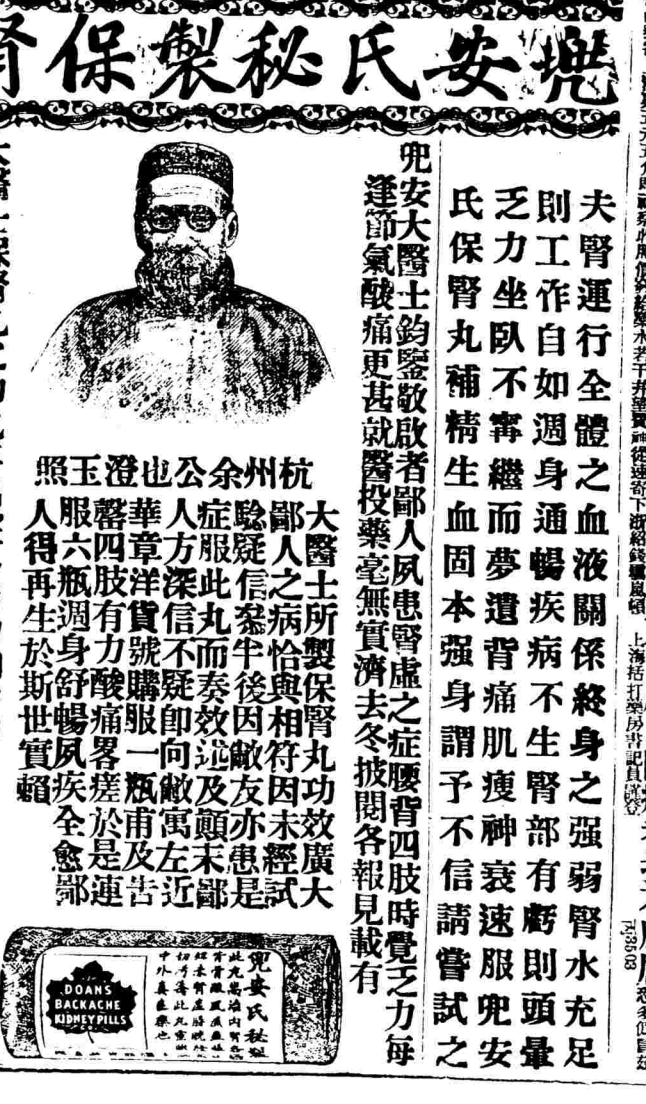 兜安氏秘製保腎
夫腎運行全體之血液關係終身之强弱腎水充足
則工作自如週身通暢疾病不生腎部有虧則頭暈
乏力坐臥不寗繼而夢遺背痛肌瘦神衰速服兜安
氏保腎丸補精生血固本强身謂予不信請嘗試之
兜安大醫士鈞鑒敬啟者鄙人夙患腎虛之症腰背四肢時覺乏力每
逢節氣酸痛更甚就醫投藥毫無實濟去冬披閱各報見載有
杭州余公也澄玉照
大醫士所製保腎丸功效廣大
鄙人之病恰與相符因未經試
騐疑信叅半後因敝友亦患是
症服此丸而奏效述及顚末鄙
人方深信不疑卽向敝寓左近
華章洋貨號購服一瓶甫及告
罄四肢有力酸痛畧瘥於是連
服六瓶週身舒暢夙疾全愈鄙
人得再生於斯世實賴
兜安氏秘製
DOANS
BACKACHE
KIDNEY PILLS
上海括打藥房書記員謹登